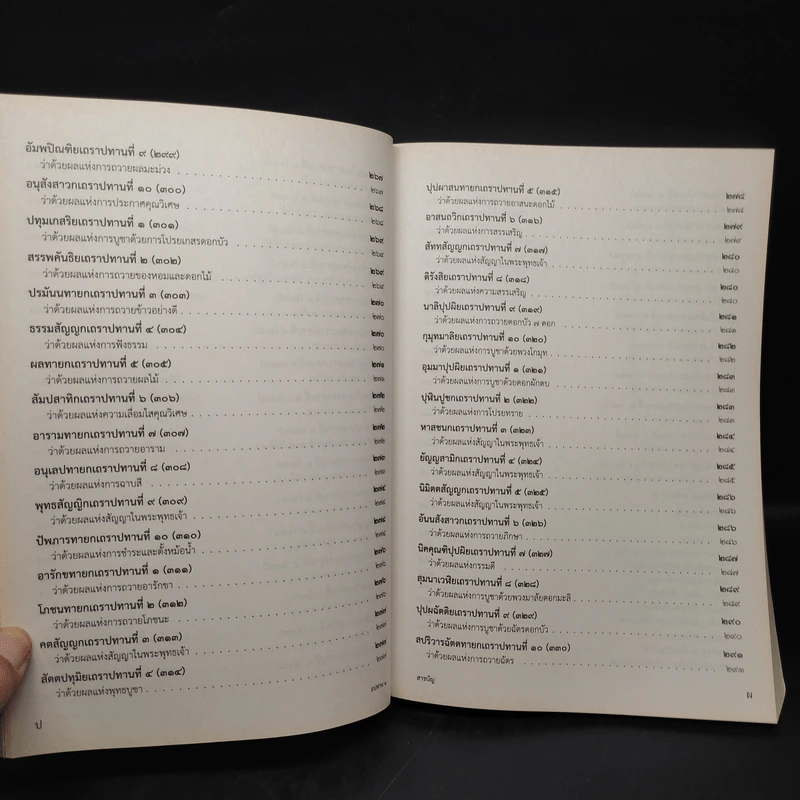 อัมพปิณฑิยเถราปทานที่ ๙ (๒๙๙)
ว่าด้วยผลแห่งการถวายผลมะม่วง ๒๖๗
อนุสังสาวกเถราปทานที่ ๑๐ (๓๐๐) ๒๖๗
ว่าด้วยผลแห่งการประกาศคุณวิเศษ ๒๖๘
ปทุมเกสริยเถราปทานที่ ๑ (๓๐๑) ๒๖๘
ว่าด้วยผลแห่งการบูชาด้วยการโปรยเกสรดอกบัว ๒๖๙
สรรพคันธิยเถราปทานที่ ๒ (๓๐๒) ๒๖๙
ว่าด้วยผลแห่งการถวายของหอมและดอกไม้ ๒๖๙
ปรมันนทายกเถราปทานที่ ๓ (๓๐๓) ๒๗๐
ว่าด้วยผลแห่งการถวายข้าวอย่างดี ๒๗๐
ธรรมสัญญกเถราปทานที่ ๔ (๓๐๔) ๒๗๐
ว่าด้วยผลแห่งการฟังธรรม ๒๗๐
ผลทายกเถราปทานที่ ๕ (๓๐๕) ๒๗๑
ว่าด้วยผลแห่งการถวายผลไม้ ๒๗๑
สัมปสาทิกเถราปทานที่ ๖ (๓๐๖) ๒๗๒
ว่าด้วยผลแห่งความเลื่อมใสคุณวิเศษ ๒๗๒
อารามทายกเถราปทานที่ ๗ (๓๐๗) ๒๗๒
ว่าด้วยผลแห่งการถวายอาราม ๒๗๒
อนุเลปทายกเถราปทานที่ ๘ (๓๐๘) ๒๗๔
ว่าด้วยผลแห่งการฉาบสี ๒๗๔
พุทธสัญญิกเถราปทานที่ ๙ (๓๐๙) ๒๗๔
ว่าด้วยผลแห่งสัญญาในพระพุทธเจ้า ๒๗๔
ปัพภารทายกเถราปทานที่ ๑๐ (๓๑๐) ๒๗๔
ว่าด้วยผลแห่งการชำระและตั้งหม้อน้ำ ๒๗๖
อารักขทายกเถราปทานที่ ๑ (๓๑๑) ๒๗๖
ว่าด้วยผลแห่งการถวายอารักขา ๒๗๖
โภชนทายกเถราปทานที่ ๒ (๓๑๒) ๒๗๗
ว่าด้วยผลแห่งการถวายโภชนะ ๒๗๗
คตสัญญกเถราปทานที่ ๓ (๓๑๓) ๒๗๗
ว่าด้วยผลแห่งสัญญาในพระพุทธเจ้า ๒๗๗
สัตตปทุมิยเถราปทานที่ ๔ (๓๑๔) ๒๗๗
ว่าด้วยผลแห่งพุทธบูชา
ป
ปุปผาสนทายกเถราปทานที่ ๕ (๓๑๕) ๒๗๘
ว่าด้วยผลแห่งการถวายอาสนะดอกไม้ ๒๗๘
อาสนถวิกเถราปทานที่ ๖ (๓๑๖) ๒๗๙
ว่าด้วยผลแห่งการสรรเสริญ ๒๗๙
สัททสัญญกเถราปทานที่ ๗ (๓๑๗) ๒๘๐
ว่าด้วยผลแห่งสัญญาในพระพุทธเจ้า ๒๘๐
ติรังสิยเถราปทานที่ ๘ (๓๑๘) ๒๘๐
ว่าด้วยผลแห่งความสรรเสริญ ๒๘๐
นาลิปุปผิยเถราปทานที่ ๙ (๓๑๙) ๒๘๑
ว่าด้วยผลแห่งการถวายดอกบัว ๗ ดอก ๒๘๑
กุมุทมาลิยเถราปทานที่ ๑๐ (๓๒๐) ๒๘๒
ว่าด้วยผลแห่งการบูชาด้วยพวงโกมุท ๒๘๒
อุมมาปุปผิยเถราปทานที่ ๑ (๓๒๑) ๒๘๓
ว่าด้วยผลแห่งการบูชาด้วยดอกผักตบ ๒๘๓
ปุฬินปูชกเถราปทานที่ ๒ (๓๒๒) ๒๘๓
ว่าด้วยผลแห่งการโปรยทราย ๒๘๓
หาสชนกเถราปทานที่ ๓ (๓๒๓) ๒๘๔
ว่าด้วยผลแห่งสัญญาในพระพุทธเจ้า ๒๘๔
ยัญญสามิกเถราปทานที่ ๔ (๓๒๔) ๒๘๕
ว่าด้วยผลแห่งสัญญาในพระพุทธเจ้า ๒๘๕
นิมิตตสัญญกเถราปทานที่ ๕ (๓๒๕) ๒๘๖
ว่าด้วยผลแห่งสัญญาในพระพุทธเจ้า ๒๘๖
อันนสังสาวกเถราปทานที่ ๖ (๓๒๖) ๒๘๖
ว่าด้วยผลแห่งการถวายภิกษา ๒๘๖
นิคคุณฑิปุปผิยเถราปทานที่ ๗ (๓๒๗) ๒๘๗
ว่าด้วยผลแห่งกรรมดี ๒๘๗
สุมนาเวฬิยเถราปทานที่ ๘ (๓๒๘) ๒๘๙
ว่าด้วยผลแห่งการบูชาด้วยพวงมาลัยดอกมะลิ ๒๘๙
ปุปผฉัตติยเถราปทานที่ ๙ (๓๒๙) ๒๙๐
ว่าด้วยผลแห่งการบูชาด้วยฉัตรดอกบัว ๒๙๐
สปริวารฉัตตทายกเถราปทานที่ ๑๐ (๓๓๐) ๒๙๑
ว่าด้วยผลแห่งการถวายฉัตร ๒๙๑
สารบัญ
ผ